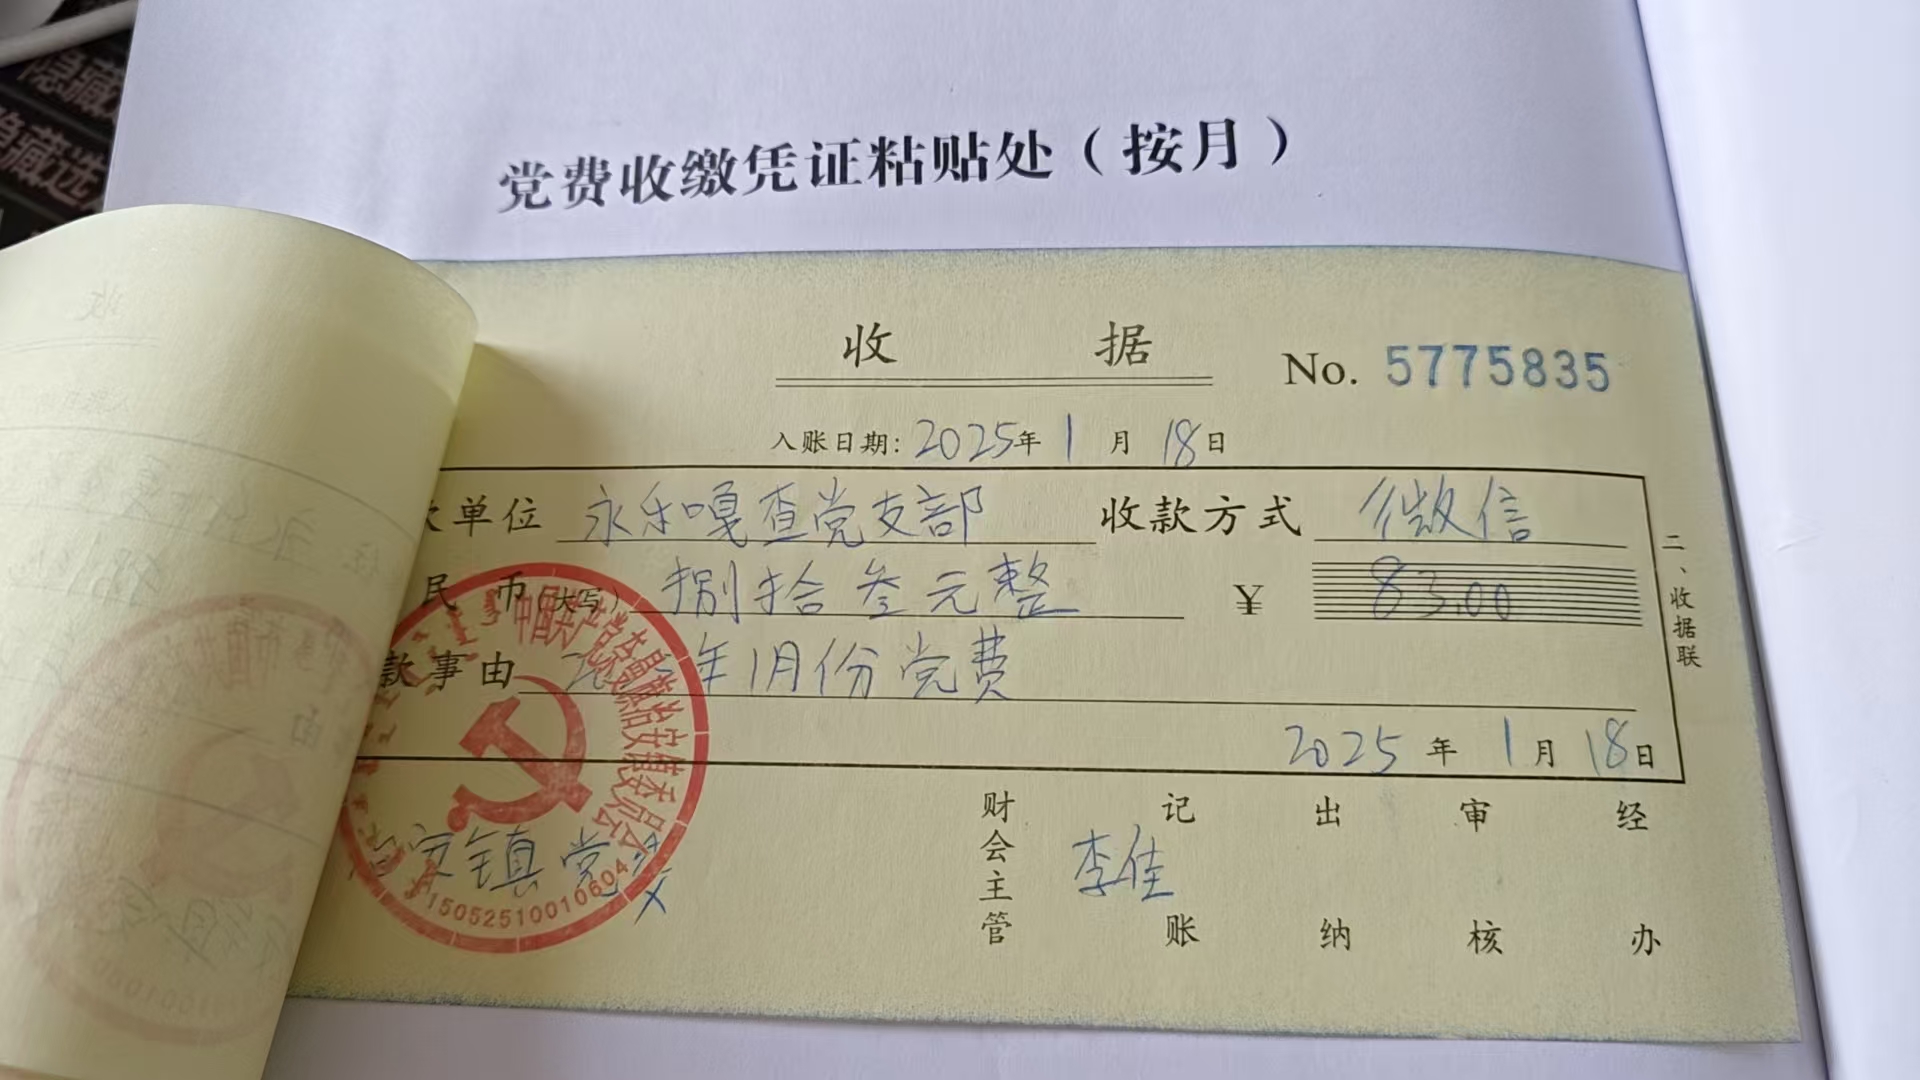 党费收缴凭证粘贴处（按月）
收 据
No. 5775835
入账日期: 2025年 1 月 18日
单位 永乐嘎查党支部 收款方式 微信
民 币（大写） 捌拾叁元整 ¥ 83.00
款事由 年1月份党费
2025 年 1 月 18日
二、收据联
镇党
中国共产党
镇委员会
15052510010604
财会主管 李佳
记账
出纳
审核
经办
隐藏
隐藏选